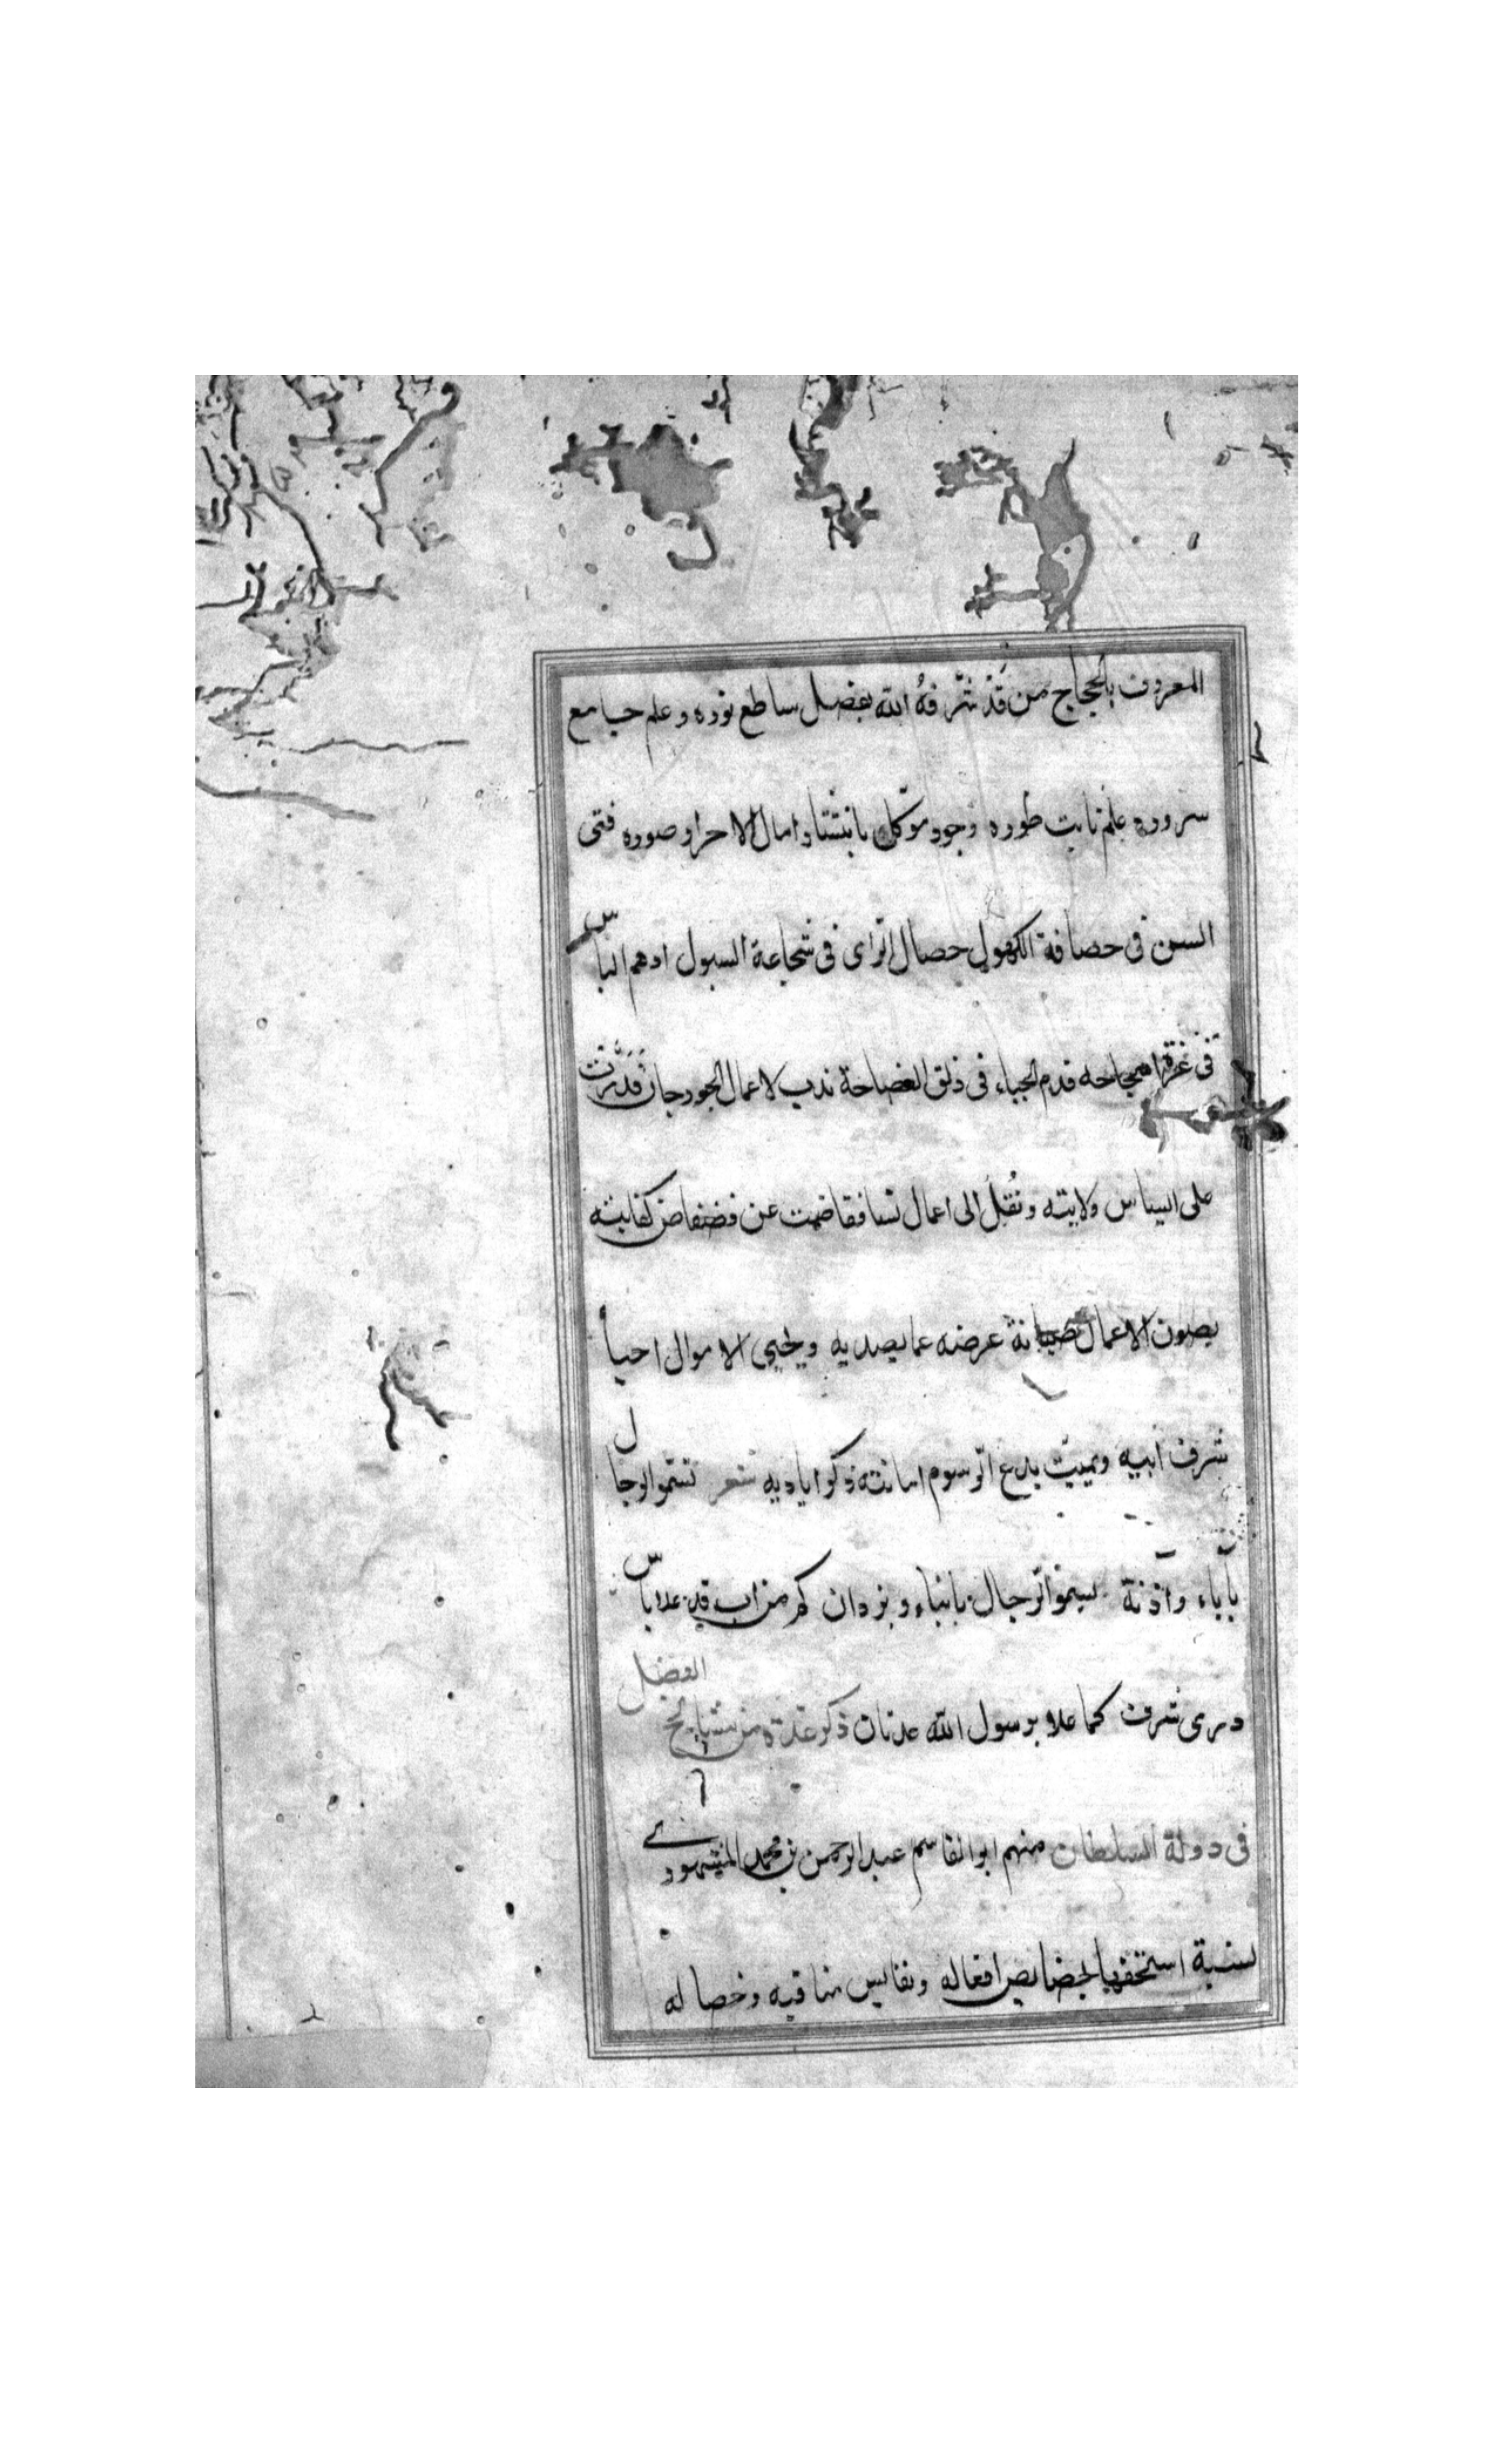 المعروف بالحجاج من قد شرفه الله بفضل ساطع نوره وعلم جامع
سروره علم نابت طوره وجود موكل بانتشاد امال الاحرار صوره فتى
السن فى حصافة الكهول حصال الراى فى شجاعة السبول ادهم الباس
فى غرة قدم الحياء فى ذلق الفصاحة ندب لاعمال الجود جان قدرت
على ولايته ونقل الى اعمال نسا فقاضت عن فضفاض كفايته
يصون الاعمال صيانة عرضه عما يصديه ويحيى الاموال احيا
شرف ابيه ويميت بدع الرسوم اماتته ذكر اياديه شعر تسمو الرجال
بآباء وآذنة يسموا الرجال بابناء ويزدان كم من اب قد علا باس
درى شرف كما علا برسول الله عدنان ذكر عدة من مشايخ الفضل
فى دولة السلطان منهم ابو القاسم عبد الرحمن بن محمد
لسنبة استحقها لخصايص افعاله ونفايس مناقبه وخصاله